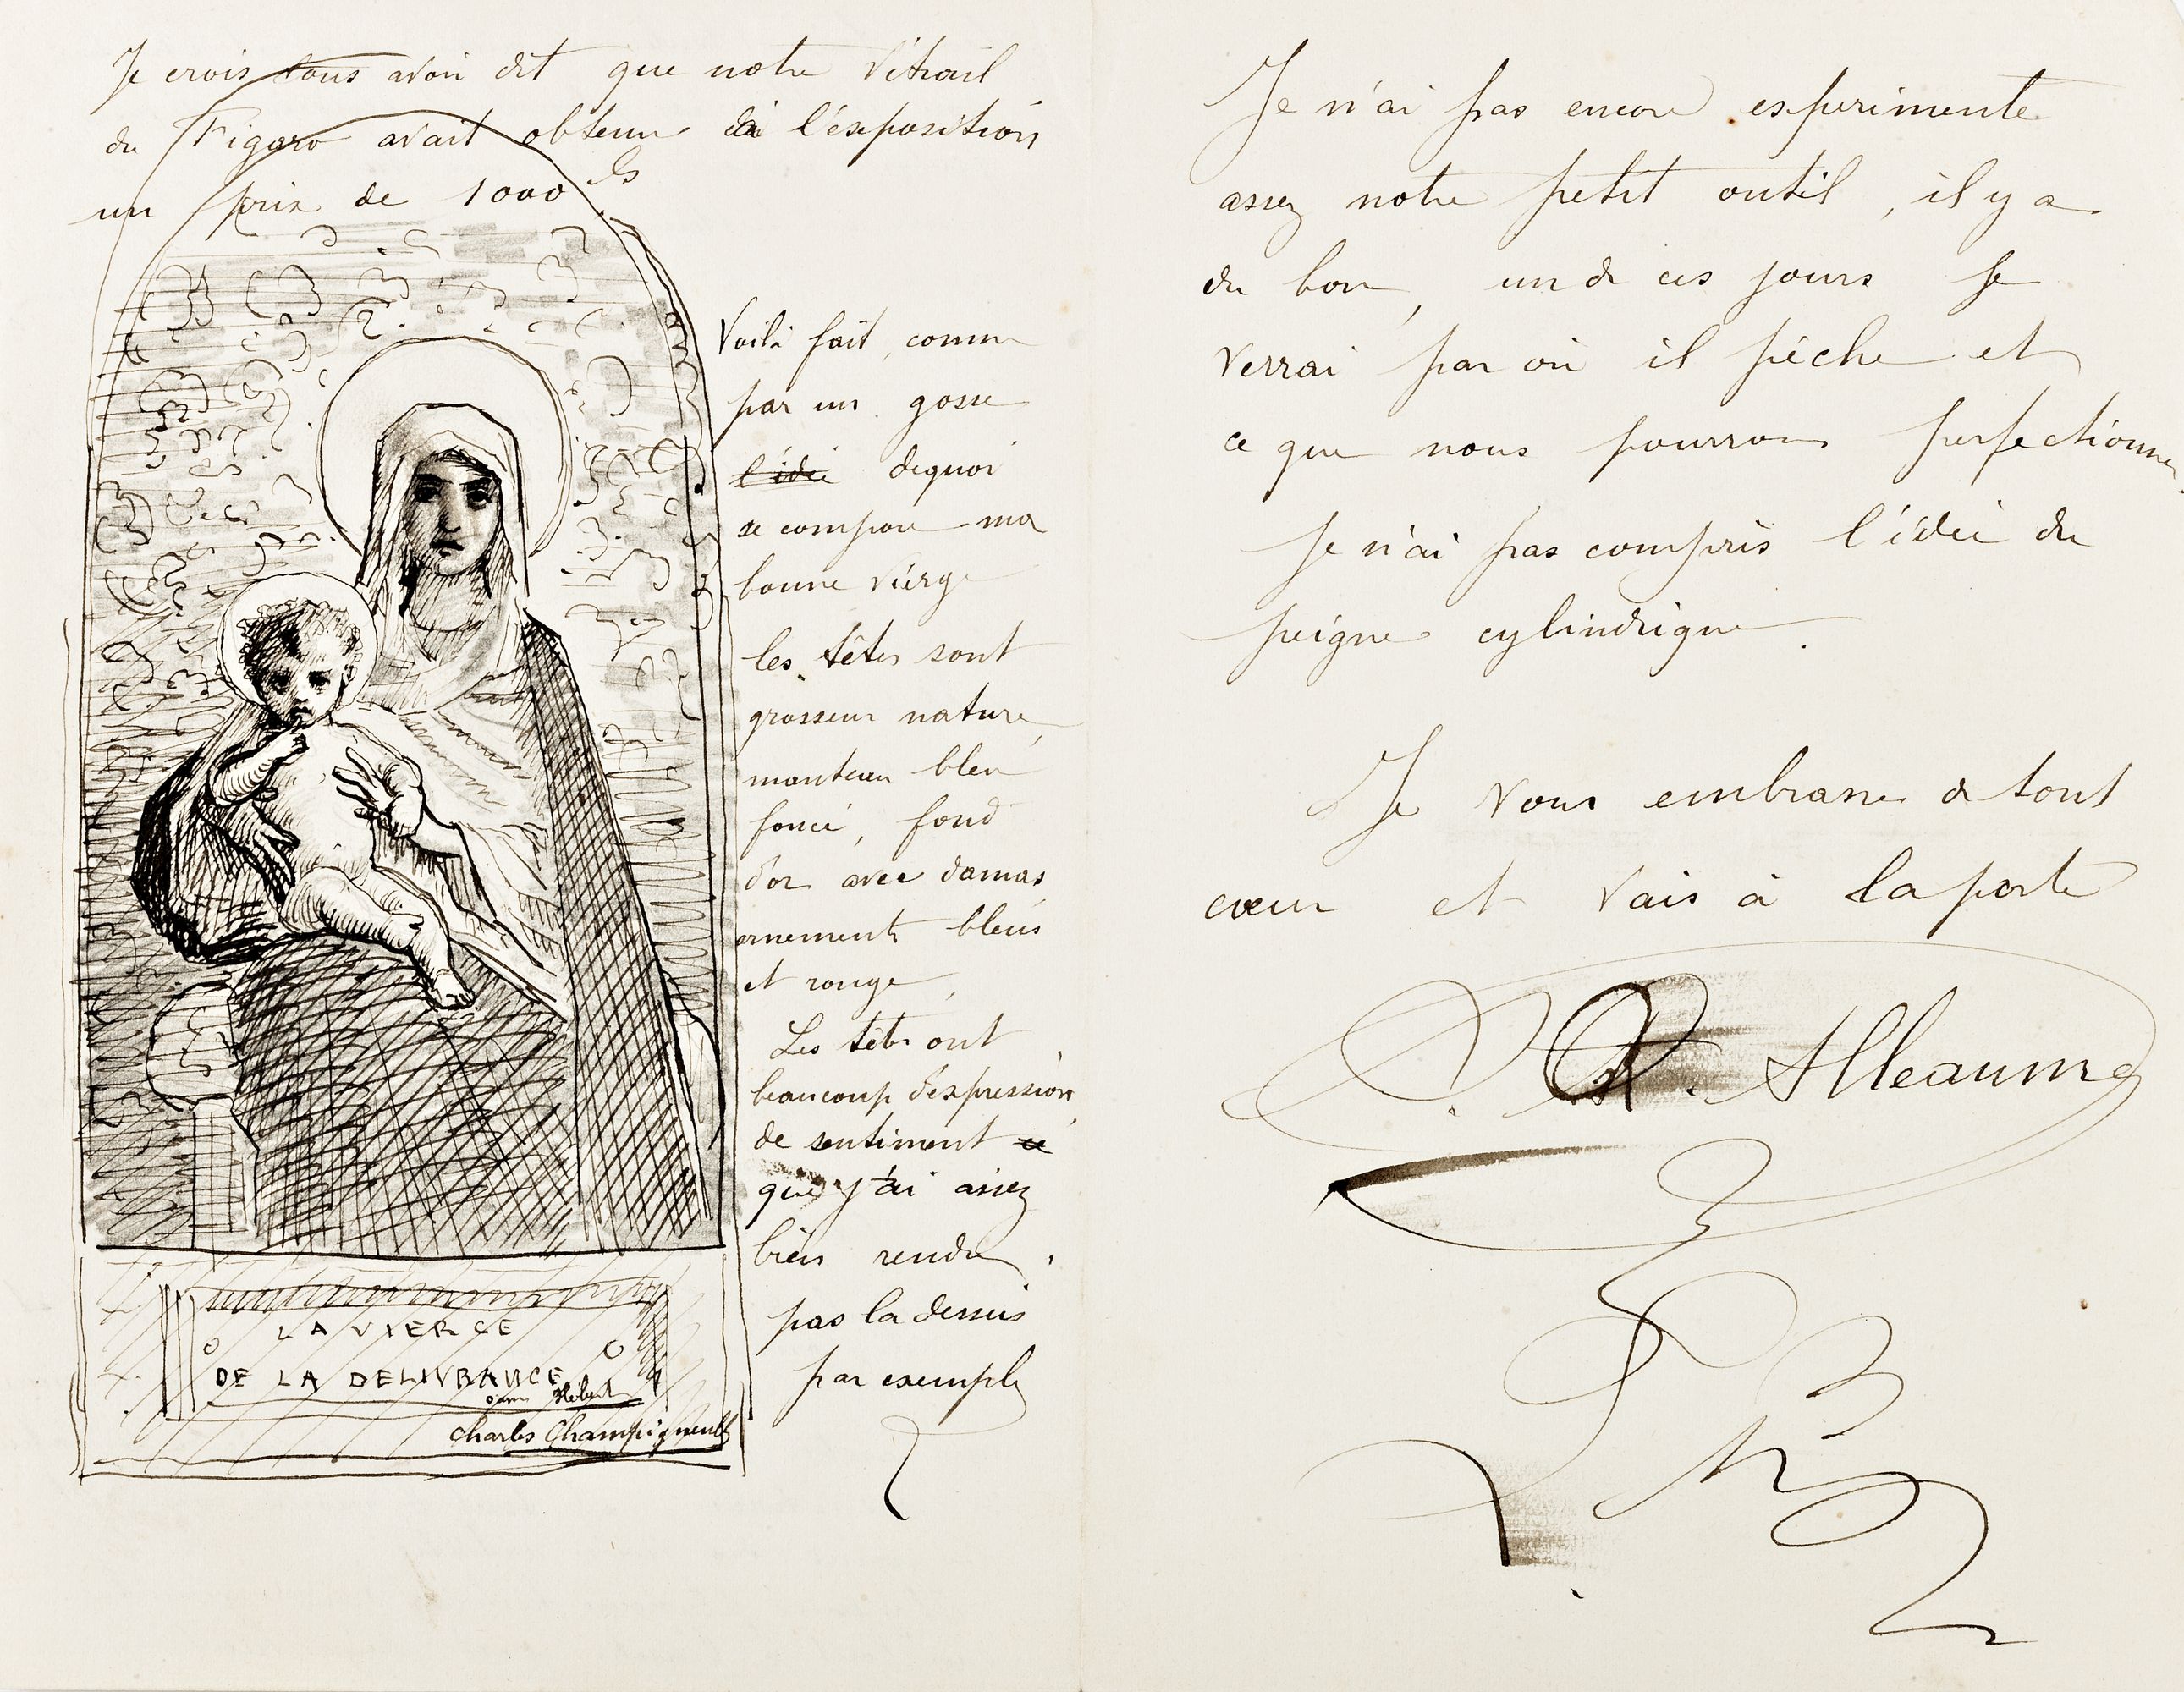 Je crois vous avoir dit que notre Vitrail
du Figaro avait obtenu à l'éxposition
un prix de 1000 fs
Voilà fait, comme
par un gosse
l'idée dequoi
se compose ma
bonne Vierge
les têtes sont
grosseur nature,
manteau bleu
foncé, fond
d'or avec damas
ornements bleus
et rouge,
Les têtes ont
beaucoup d'expression
de sentiment ce
que j'ai assez
bien rendu,
pas la dessus
par exemple
LA VIERGE
DE LA DELIVRANCE
Hébert
Charles Champigneulle
Je n'ai pas encore esperimenté
assez notre petit outil, il y a
du bon, un de ces jours je
verrai par où il pêche et
ce que nous pourrons perfectionner.
Je n'ai pas compris l'idée du
peigne cylindrique.
Je vous embrasse de tout
cœur et vais à la poste
Alleaume